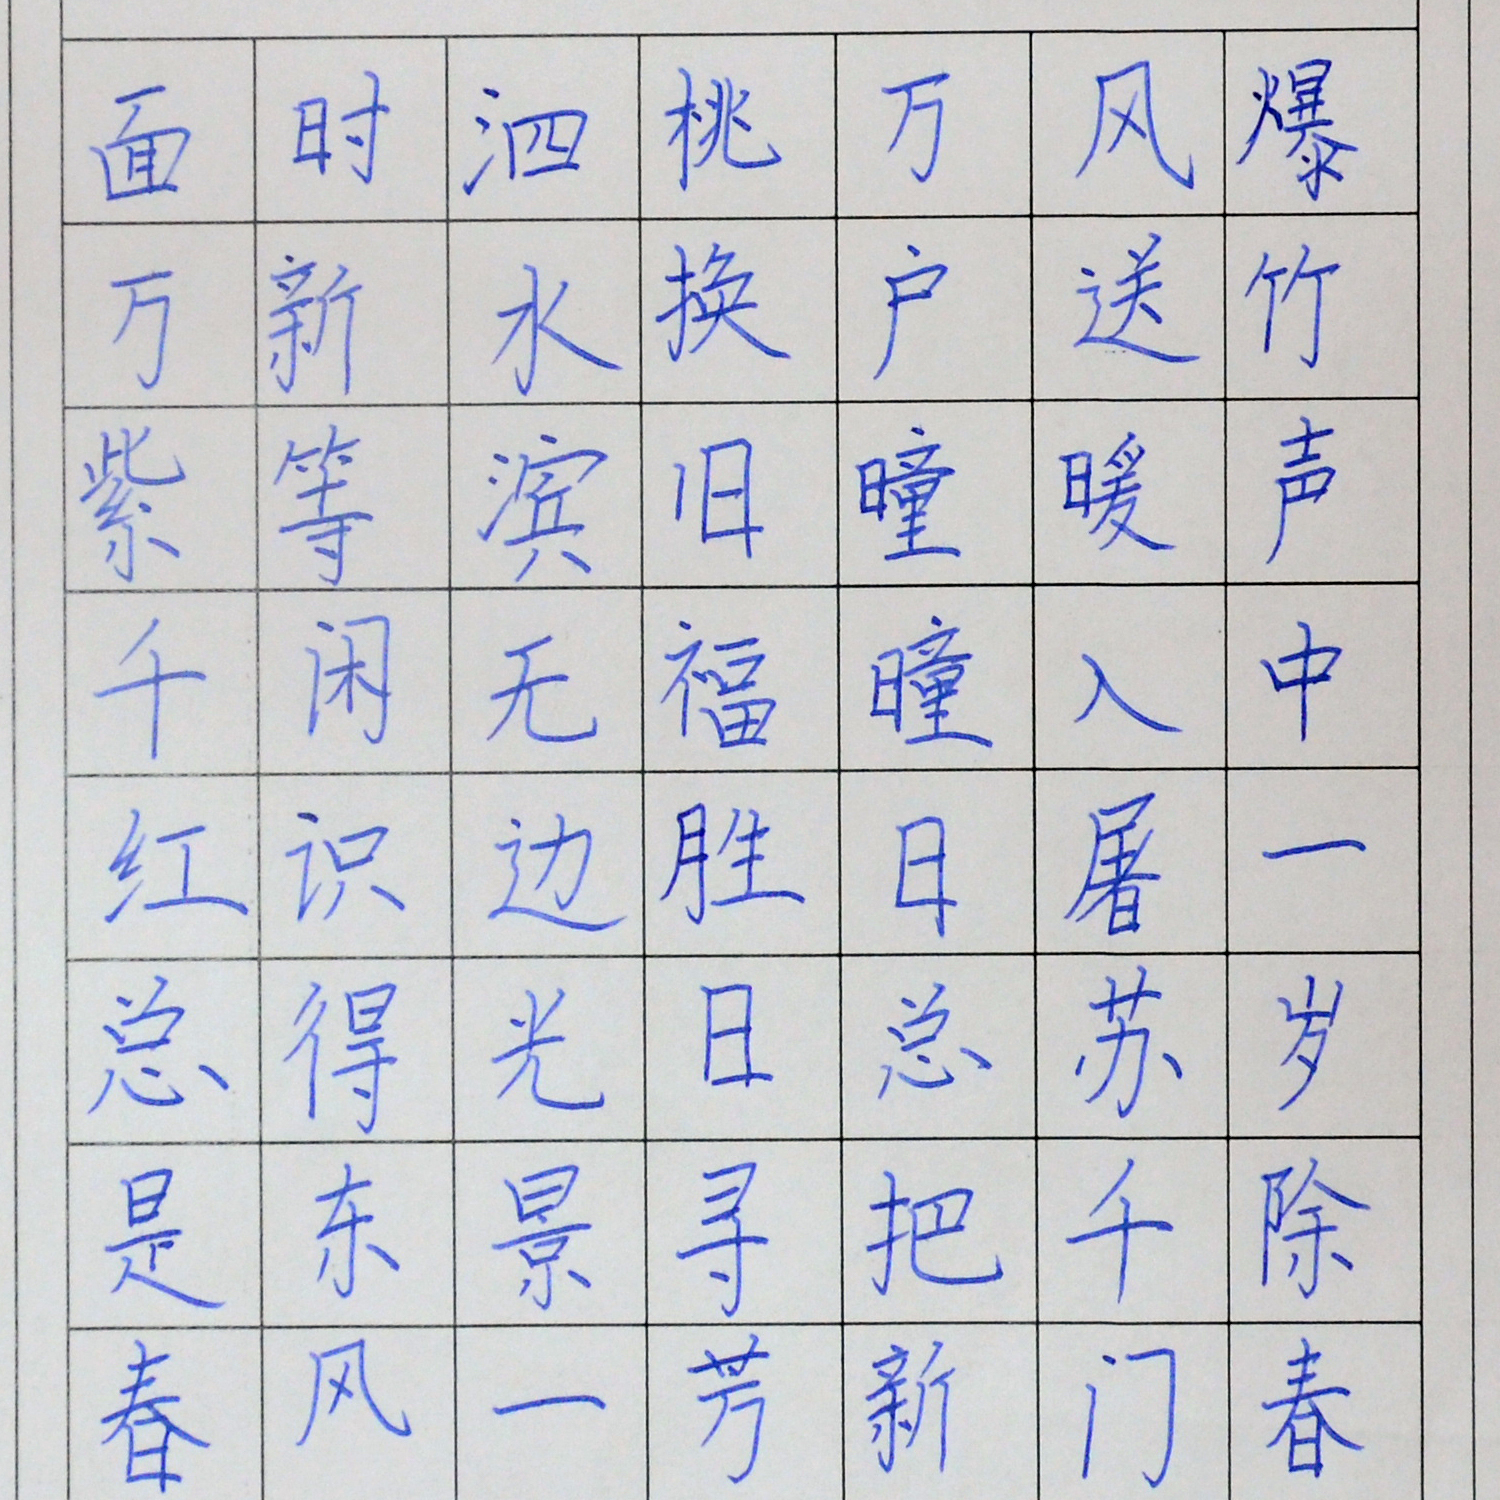 爆竹声中一岁除春
风送暖入屠苏千门
万户曈曈日总把新
桃换旧福胜日寻芳
泗水滨无边光景一
时新等闲识得东风
面万紫千红总是春